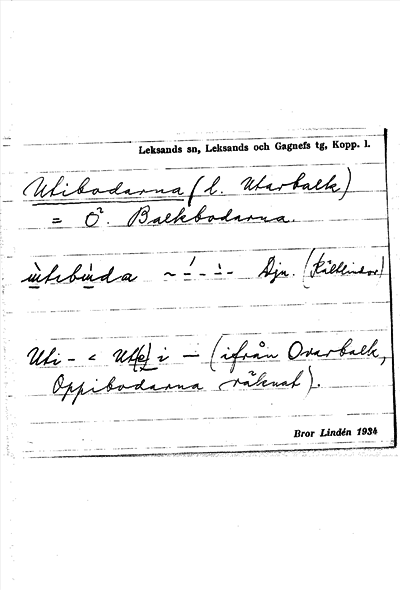 Leksands sn, Leksands och Gagnefs tg, Kopp. l.
Utibodarna (l. Utarbalk)
= Ö. Balkbodarna.
ùtıbùda ~ -́ - -̀ - Djn. (Källindor)
Uti- < Ut(e) i — (ifrån Ovarbalk,
Oppibodarna räknat).
Bror Lindén 1934